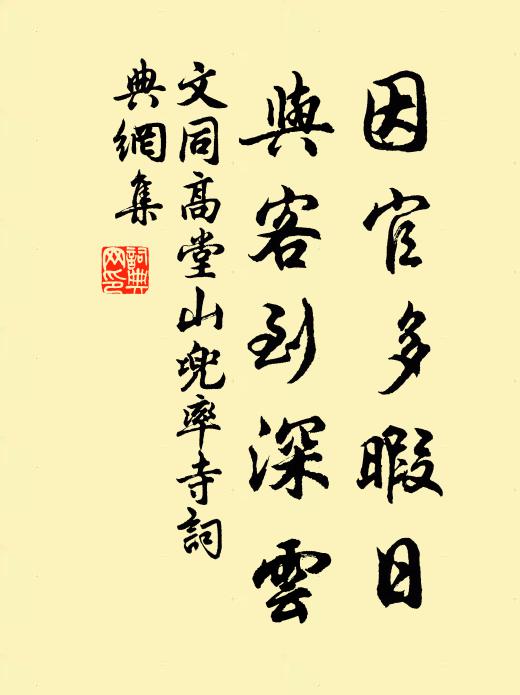 因官多暇日
與客到深雲
文同高堂山兜率寺詞
典網集
詞典
网印